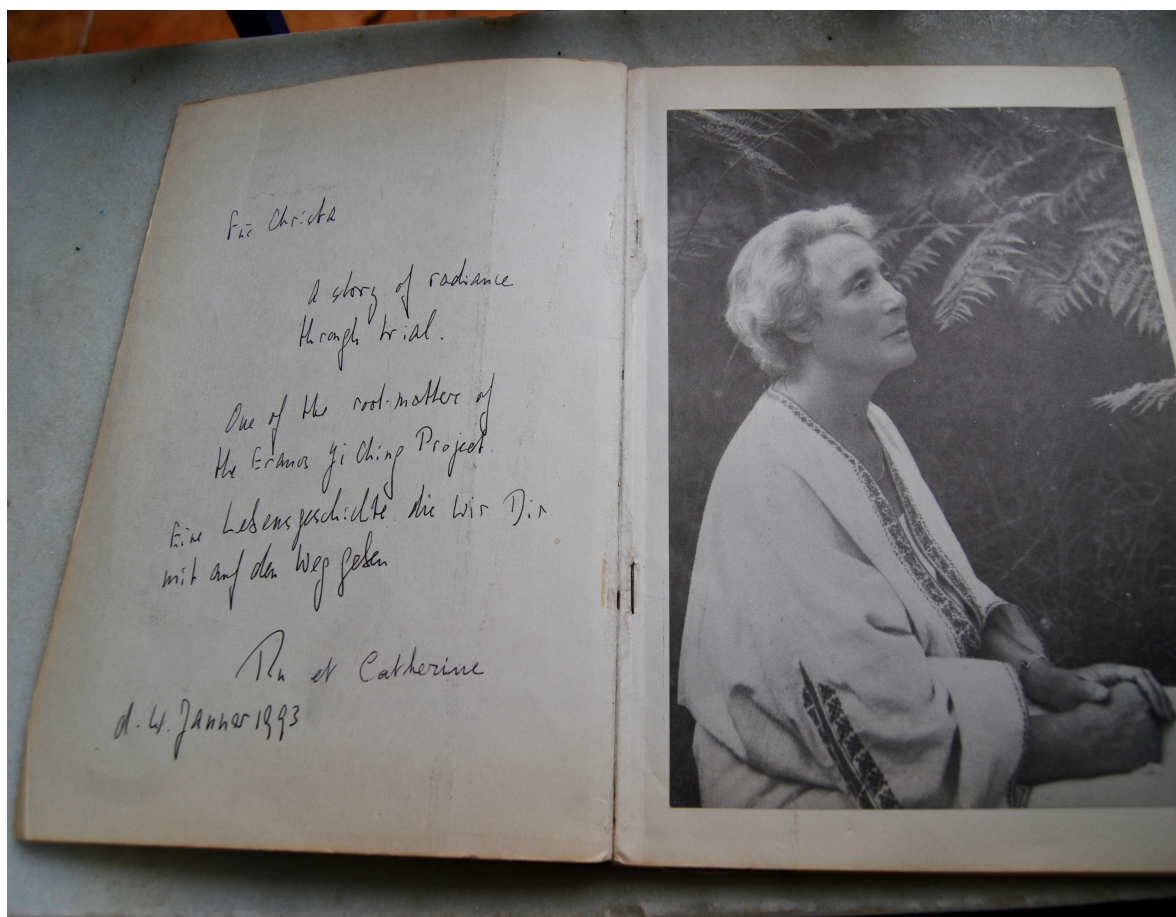 Für Christa
A story of radiance
through trial.
One of the root-matters of
the Eranos Yi Ching Project.
Eine Lebensgeschichte die wir Dir
mit auf den Weg geben
et Catherine
d. 4. Januar 1993